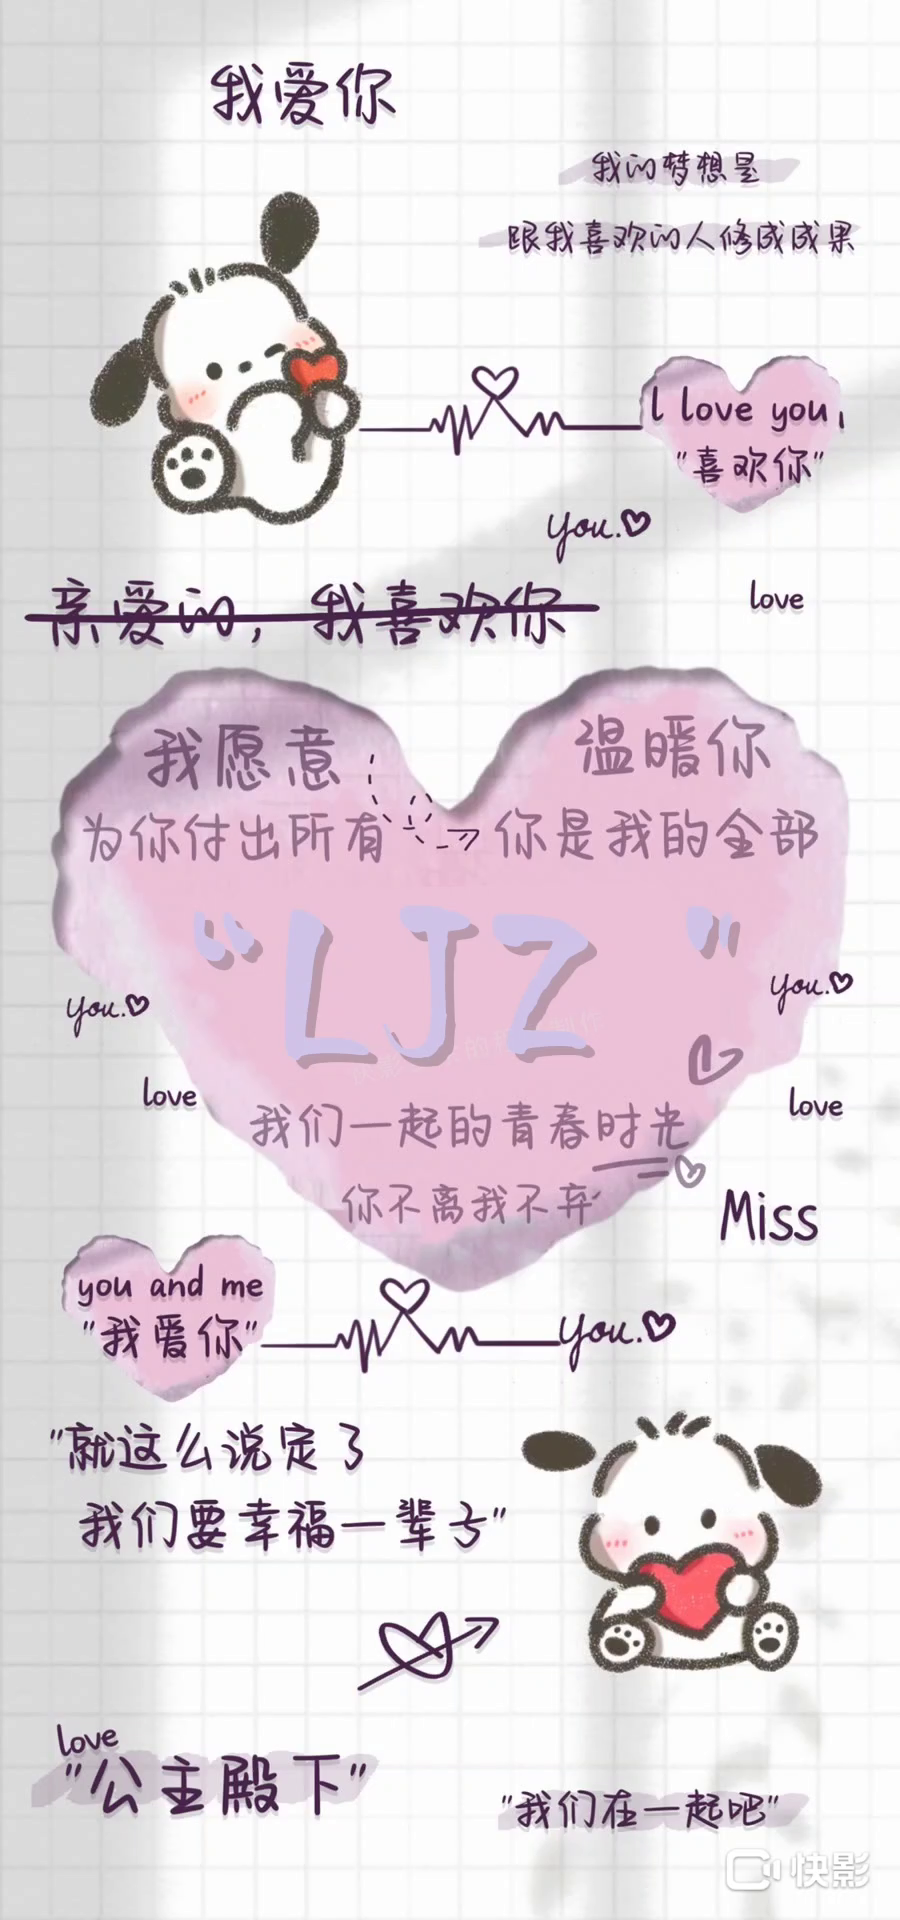 我爱你
我的梦想是
跟我喜欢的人修成成果
l love you,
"喜欢你"
you.
love
亲爱的，我喜欢你
我愿意
温暖你
为你付出所有
你是我的全部
"LJZ"
you.
you.
love
love
我们一起的青春时光
你不离我不弃
Miss
you and me
"我爱你"
you.
"就这么说定了
我们要幸福一辈子"
love
"公主殿下"
"我们在一起吧"
快影